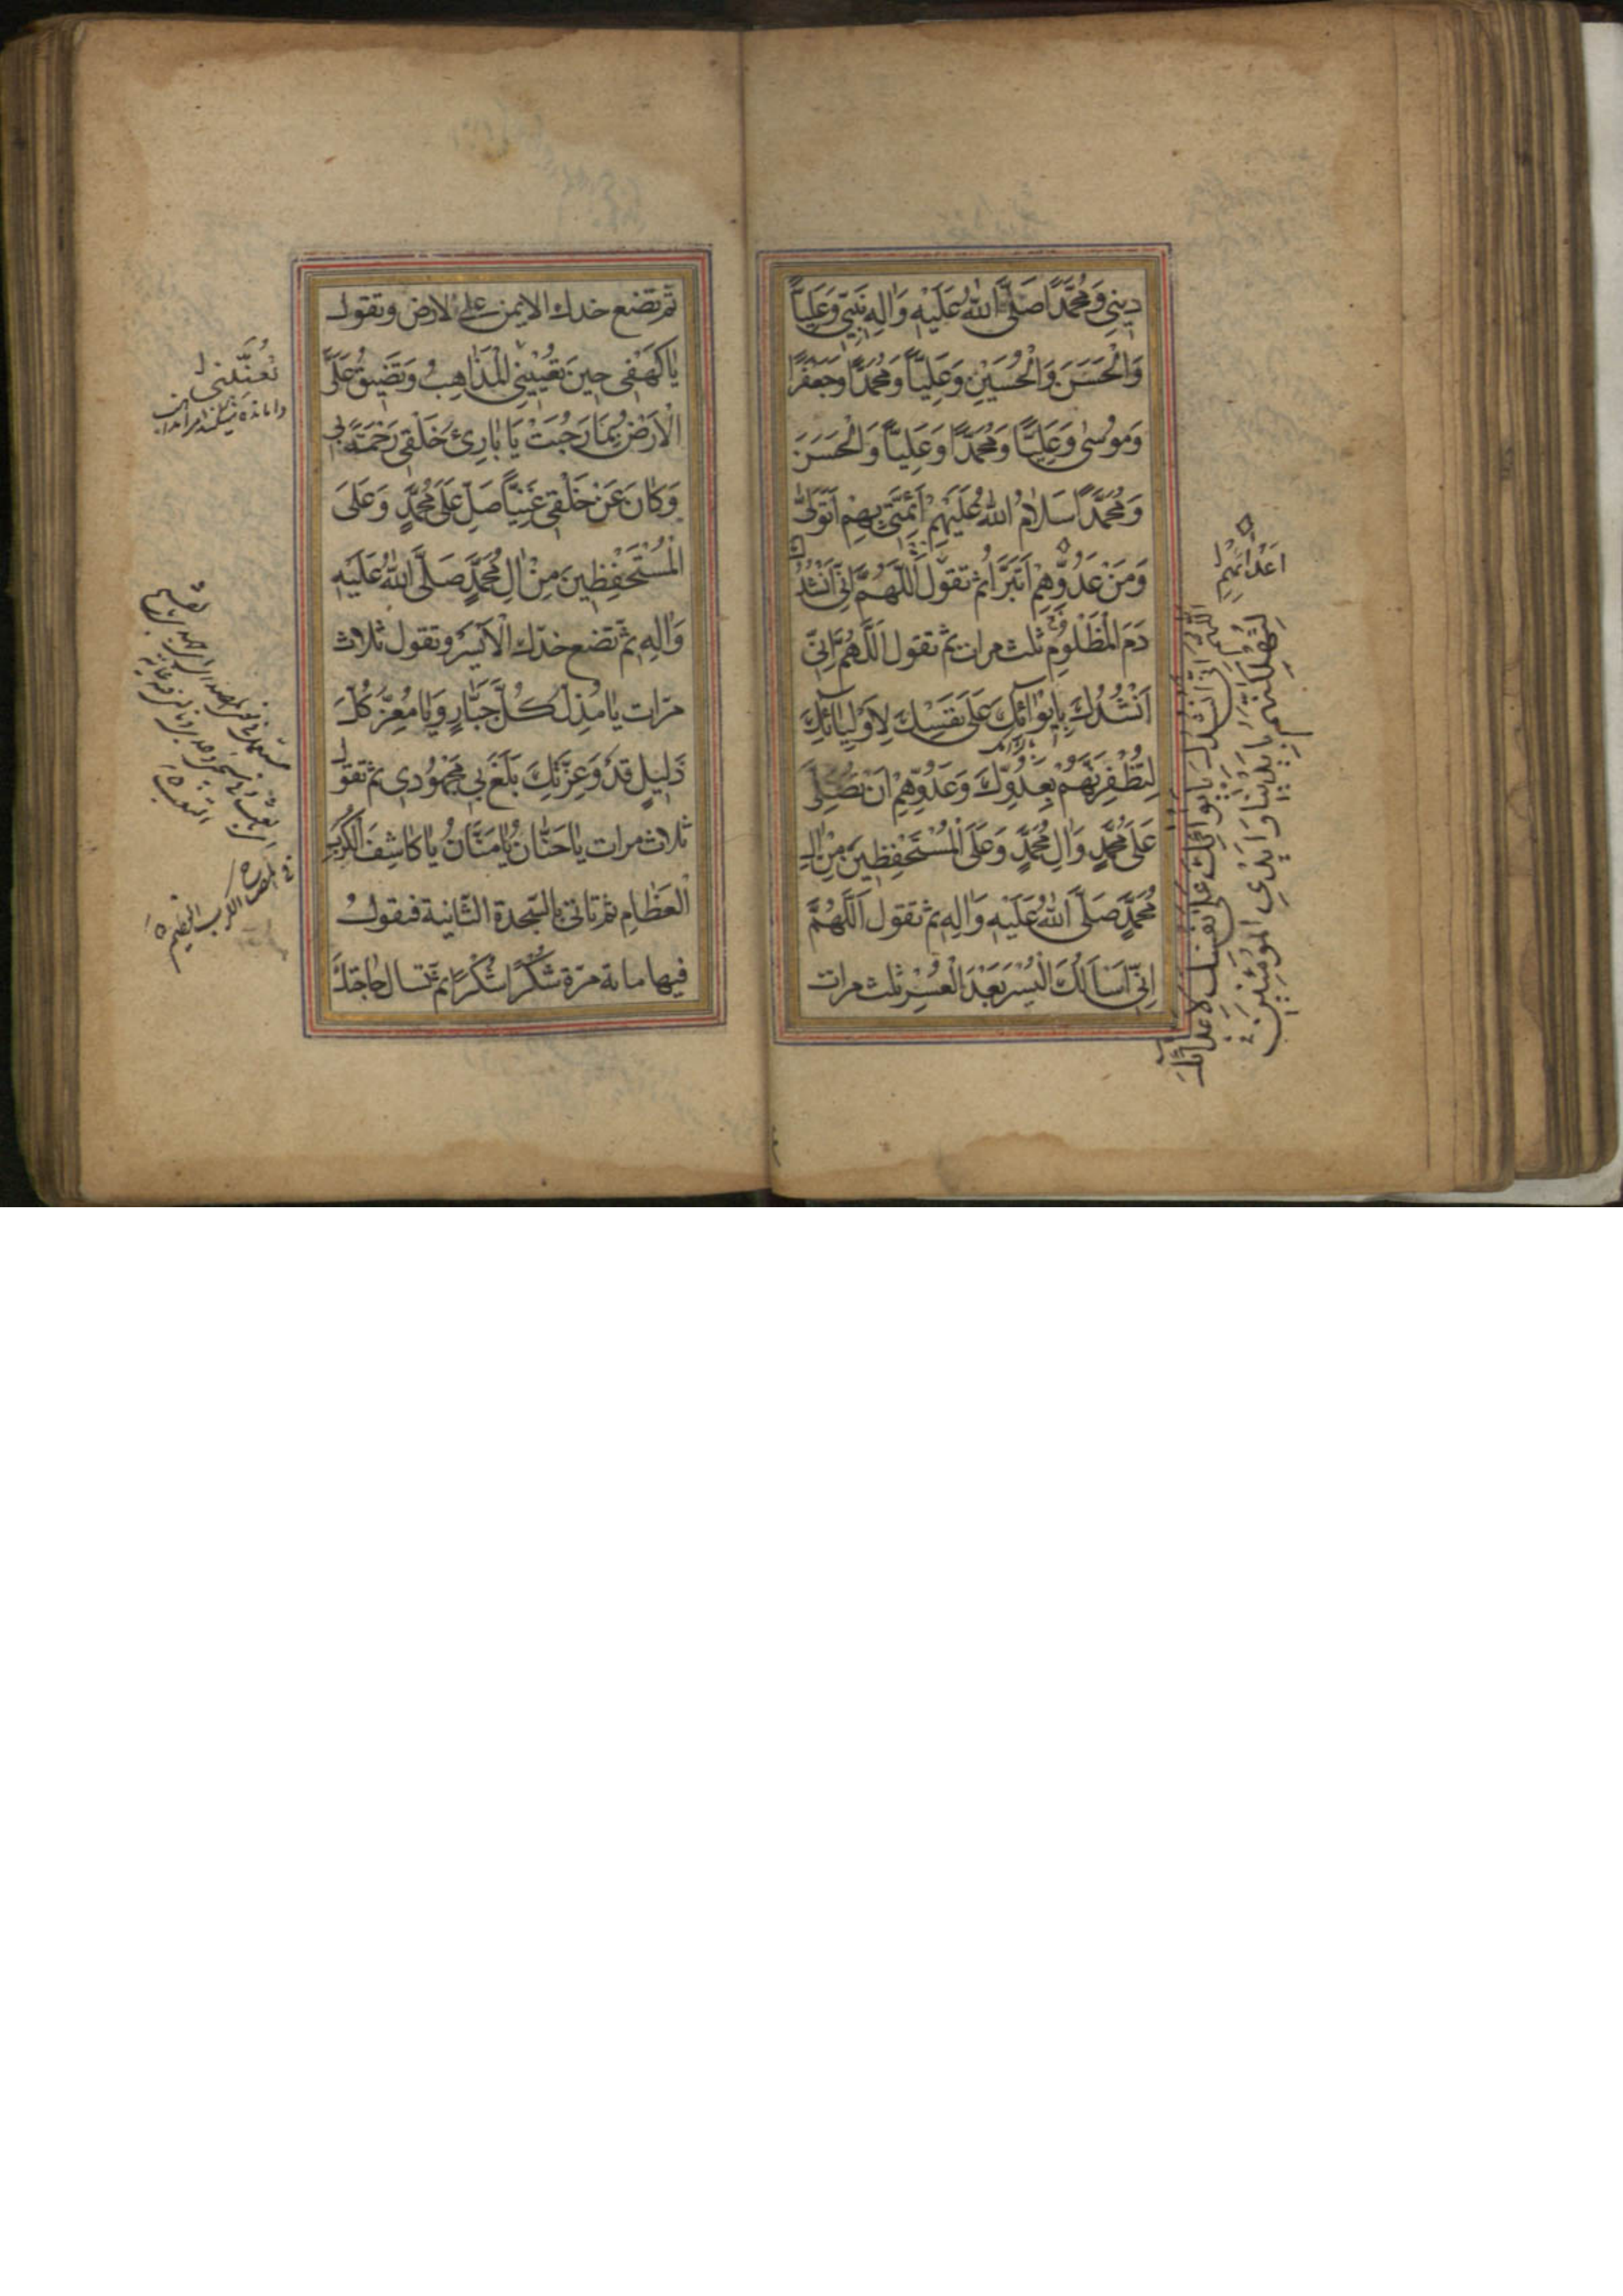 دِينِي وَمُحَمَّدًا صَلَّى اللّٰهُ عَلَيْهِ وَاٰلِهِ نَبِيِّي وَعَلِيًّا
وَالْحَسَنَ وَالْحُسَيْنَ وَعَلِيًّا وَمُحَمَّدًا وَجَعْفَرًا
وَمُوسٰى وَعَلِيًّا وَمُحَمَّدًا وَعَلِيًّا وَالْحَسَنَ
وَمُحَمَّدًا سَلَامُ اللّٰهِ عَلَيْهِمْ اَئِمَّتِي بِهِمْ اَتَوَلّٰى
وَمِنْ عَدُوِّهِمْ اَتَبَرَّأُ ثم تقول اَللّٰهُمَّ اِنِّي اَنْشُدُكَ
دَمَ الْمَظْلُومِ ثلث مرات ثم تقول اَللّٰهُمَّ اِنِّي
اَنْشُدُكَ بِاِيوَائِكَ عَلٰى نَفْسِكَ لِاَوْلِيَائِكَ
لِتُظْفِرَنَّهُمْ بِعَدُوِّكَ وَعَدُوِّهِمْ اَنْ تُصَلِّيَ
عَلٰى مُحَمَّدٍ وَاٰلِ مُحَمَّدٍ وَعَلَى الْمُسْتَحْفِظِينَ مِنْ اٰلِ
مُحَمَّدٍ صَلَّى اللّٰهُ عَلَيْهِ وَاٰلِهِ ثم تقول اَللّٰهُمَّ
اِنِّي اَسْاَلُكَ الْيُسْرَ بَعْدَ الْعُسْرِ ثلث مرات
اَعْدَائِهِمْ
اِنِّي اَنْشُدُكَ بِاِيوَائِكَ عَلٰى نَفْسِكَ لِاَعْدَائِكَ
لِتُهْلِكَنَّهُمْ بِاَيْدِينَا وَاَيْدِي الْمُؤْمِنِينَ
ثم تضع خدك الايمن على الارض وتقول
يَا كَهْفِي حِينَ تُعْيِينِي الْمَذَاهِبُ وَتَضِيقُ عَلَيَّ
الْاَرْضُ بِمَا رَحُبَتْ يَا بَارِئَ خَلْقِي رَحْمَةً بِي
وَكَانَ عَنْ خَلْقِي غَنِيًّا صَلِّ عَلٰى مُحَمَّدٍ وَعَلَى
الْمُسْتَحْفِظِينَ مِنْ اٰلِ مُحَمَّدٍ صَلَّى اللّٰهُ عَلَيْهِ
وَاٰلِهِ ثم تضع خدّك الْاَيْسَر وتقول ثلاث
مرّات يَا مُذِلَّ كُلِّ جَبَّارٍ وَيَا مُعِزَّ كُلِّ
ذَلِيلٍ قَدْ وَعِزَّتِكَ بَلَغَ بِي مَجْهُودِي ثم تقول
ثلاث مرات يَا حَنَّانُ يَا مَنَّانُ يَا كَاشِفَ الْكُرَبِ
الْعِظَامِ ثم تاتي بالسّجدة الثّانية فتقول
فيها مائة مرّة شُكْرًا شُكْرًا ثم تسال حاجتك